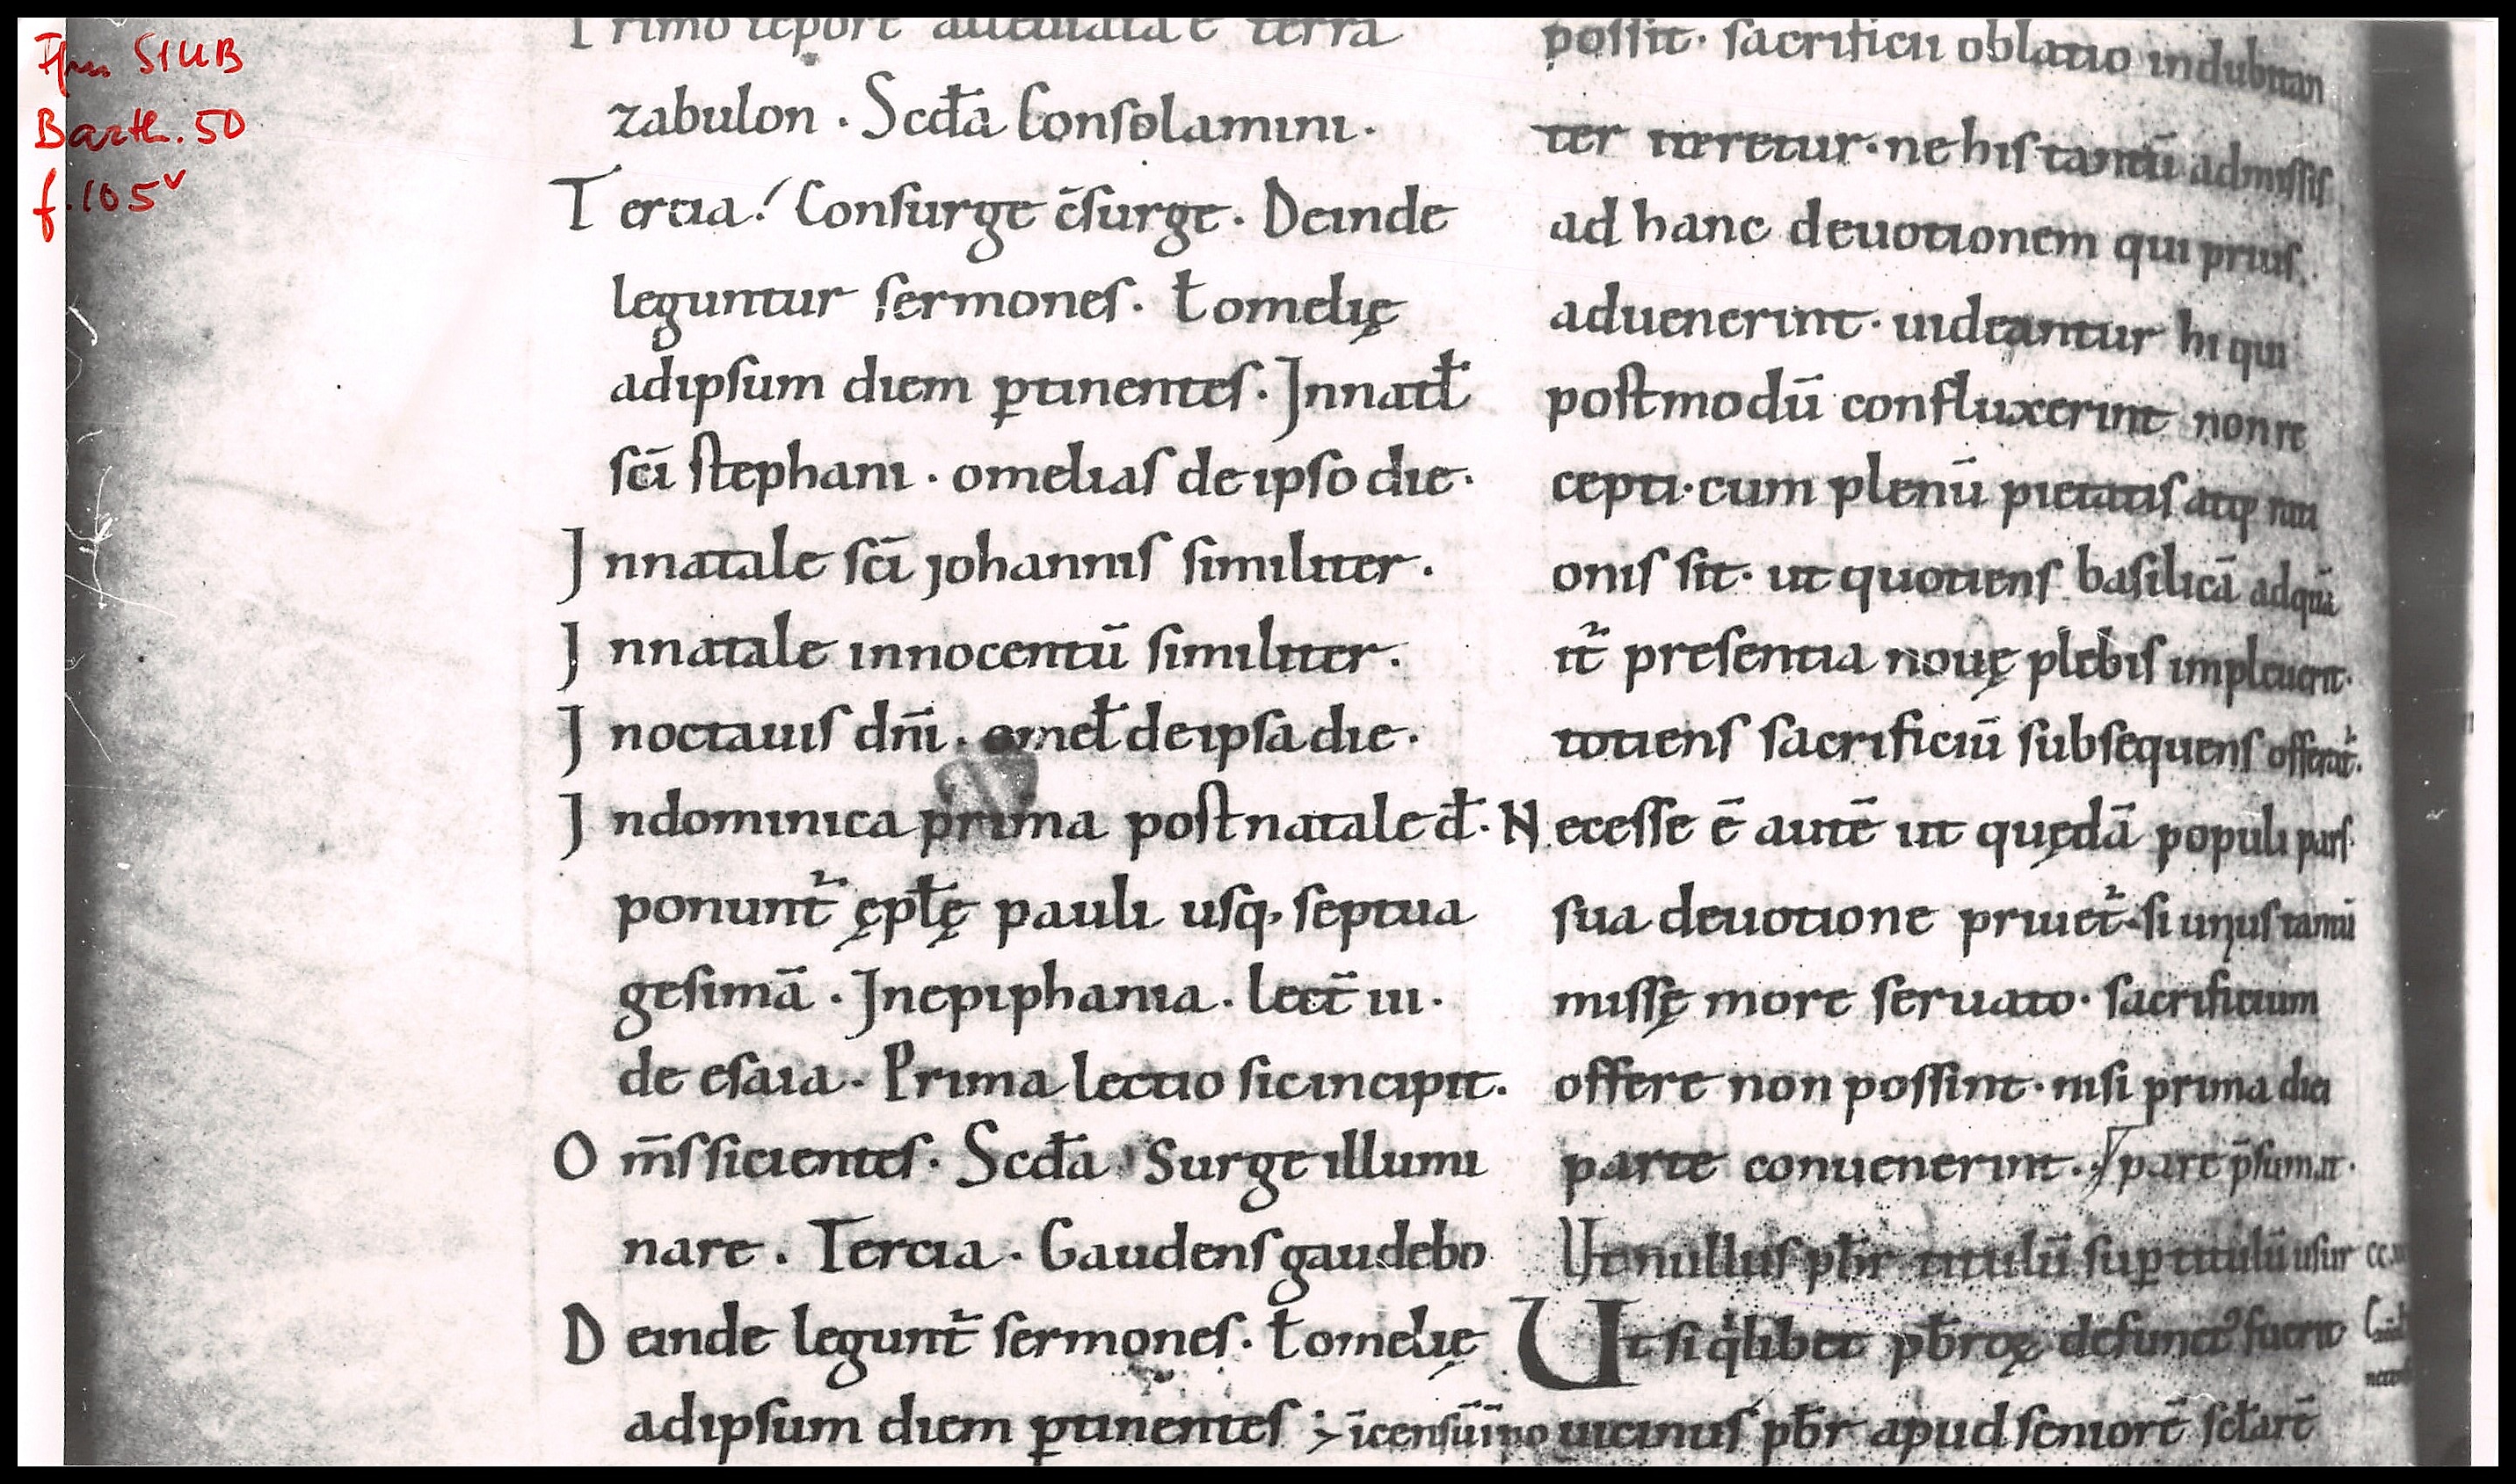 Ffm StUB
Barth. 50
f. 105v
Primo tēpore alleuiata ē terra
zabulon . Scđa Consolamini .
Tercia! Consurge c̄surge . Deinde
leguntur sermones . ł omelię
adipsum diem ꝑtinentes . Innatł
sc̄i stephani . omelias de ipso die .
Innatale sc̄i johannis similiter .
Innatale innocentū similiter .
Inoctauis dn̄i . omeł deipsa die .
Indominica prima postnatale đ .
ponunt̃ ępłę pauli usq, septua
gesimā . Inepiphania . lect̄ iii .
de esaia . Prima lectio sicincipit .
Om̄s sicientes . Scđa Surge illumi
nare . Tercia . Gaudens gaudebo
Deinde legunt̃ sermones . ł omelię
adipsum diem ꝑtinentes
possit . sacrificii oblatio indubitan
ter iteretur . ne his tantū admissis
ad hanc deuotionem qui prius
aduenerint . uideantur hi qui
postmodū confluxerint non re
cepti . cum plenū pietatis atq; rati
onis sit . ut quotiens basilicā ad quā
it̃ presentia nouę plebis impleuerit .
totiens sacrificiū subsequens offerat̃ .
Necesse ē autē ut quędā populi pars
sua deuotione priuet̃ . si unus tantū
missę more seruato . sacrificium
offere non possint . nisi prima diei
parte conuenerint . pare p̄sumat .
Ut nullus pb̄r titulū suꝑ titulū usur
Ut si q̇libet pb̄roꝝ defunctꝰ fuerit
uicinus pb̄r apud seniorē